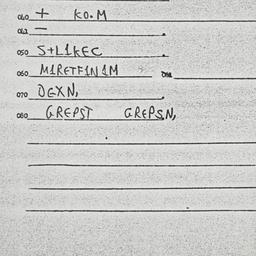 040 + KO.M
042 —
050 S+L1KEC
060 M1RETF1N1M
070 DGXN,
080 GREPST GREPSN,